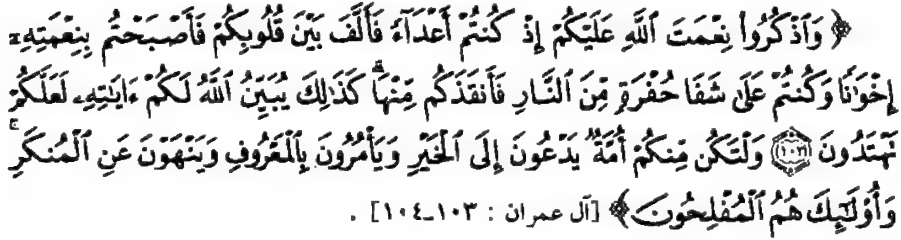 ﴿ وَٱذْكُرُوا۟ نِعْمَتَ ٱللَّهِ عَلَيْكُمْ إِذْ كُنتُمْ أَعْدَآءً فَأَلَّفَ بَيْنَ قُلُوبِكُمْ فَأَصْبَحْتُم بِنِعْمَتِهِۦٓ
إِخْوَٰنًا وَكُنتُمْ عَلَىٰ شَفَا حُفْرَةٍ مِّنَ ٱلنَّارِ فَأَنقَذَكُم مِّنْهَا ۗ كَذَٰلِكَ يُبَيِّنُ ٱللَّهُ لَكُمْ ءَايَٰتِهِۦ لَعَلَّكُمْ
تَهْتَدُونَ ﴿١٠٣﴾ وَلْتَكُن مِّنكُمْ أُمَّةٌ يَدْعُونَ إِلَى ٱلْخَيْرِ وَيَأْمُرُونَ بِٱلْمَعْرُوفِ وَيَنْهَوْنَ عَنِ ٱلْمُنكَرِ ۚ
وَأُو۟لَٰٓئِكَ هُمُ ٱلْمُفْلِحُونَ ﴾ [آل عمران : ١٠٣ـ١٠٤] .